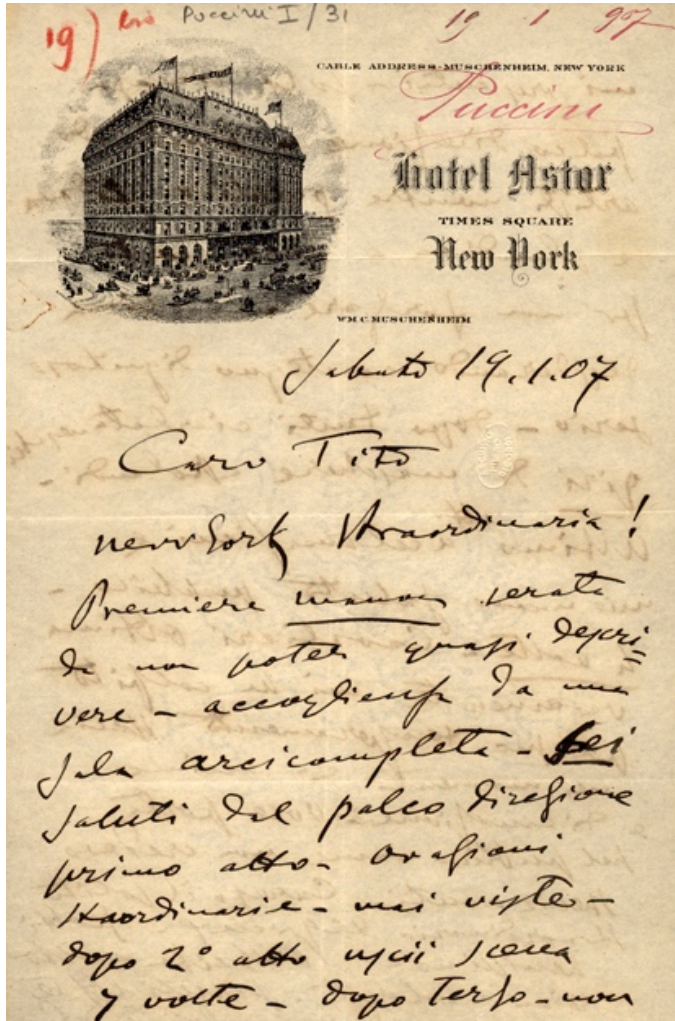 19) Puccini I/31
19 1 907
CABLE ADDRESS-MUSCHENHEIM, NEW YORK
Puccini
Hotel Astor
TIMES SQUARE
New York
WM. C. MUSCHENHEIM
Sabato 19.1.07
Caro Tito
New York straordinaria!
Premiere manon serata
da non poter quasi descri=
vere - accoglienza da una
sala arcicompleta - sei
saluti dal palco direzione
primo atto - ovazioni
straordinarie - mai viste -
dopo 2º atto uscii scena
7 volte - dopo terzo - non